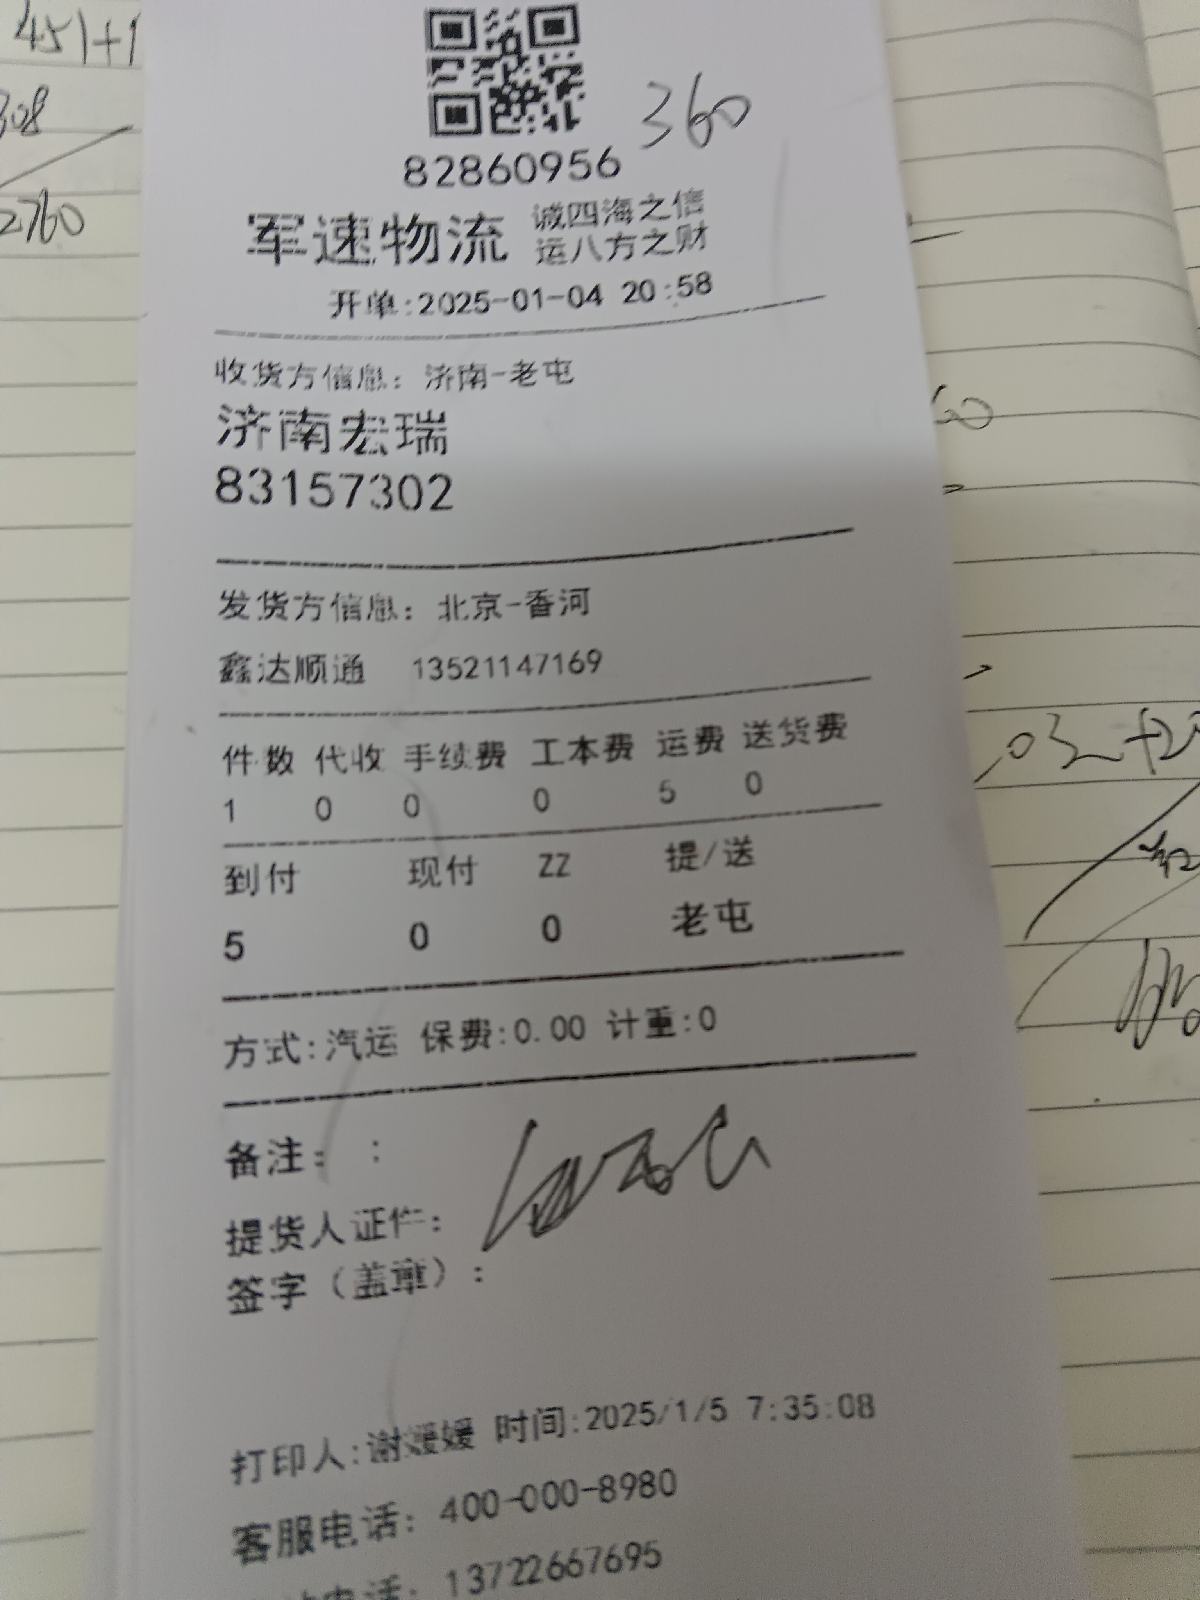 451+1
308
2760
360
82860956
军速物流 诚四海之信
运八方之财
开单:2025-01-04 20:58
收货方信息: 济南-老屯
济南宏瑞
83157302
发货方信息: 北京-香河
鑫达顺通 13521147169
件数 代收 手续费 工本费 运费 送货费
1 0 0 0 5 0
到付 现付 ZZ 提/送
5 0 0 老屯
方式:汽运 保费:0.00 计重:0
备注: :
提货人证件:
签字(盖章):
打印人:谢媛媛 时间:2025/1/5 7:35:08
客服电话: 400-000-8980
电话: 13722667695